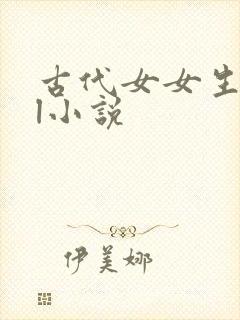 古代女女生
l小说
伊美娜